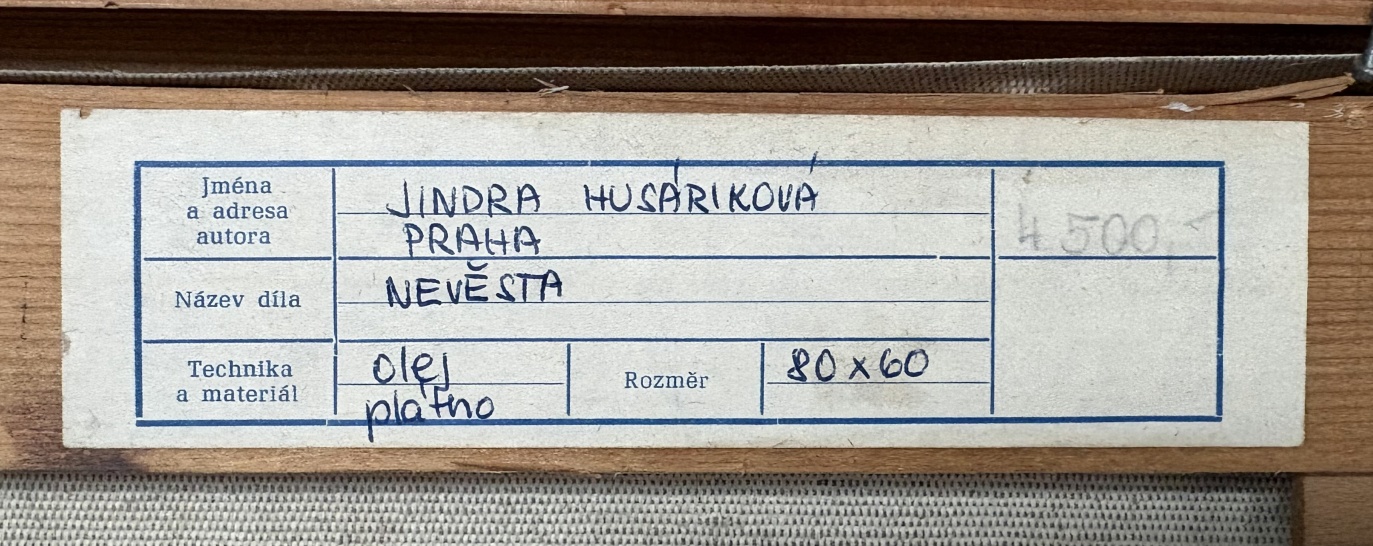 Jména
a adresa
autora
JINDRA HUSÁRIKOVÁ
PRAHA
4 500,-
Název díla
NEVĚSTA
Technika
a materiál
olej
plátno
Rozměr
80 x 60